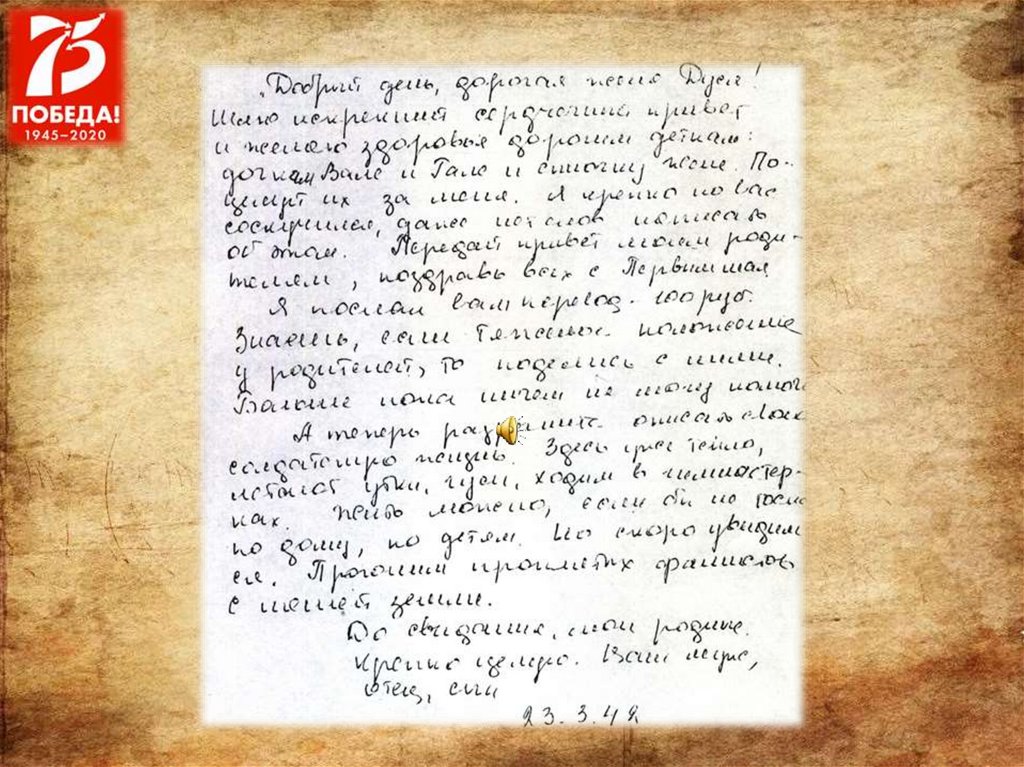 75
ПОБЕДА!
1945–2020
„Добрый день, дорогая жена Дуся!
Шлю искренний сердечный привет
и желаю здоровья дорогим деткам:
дочкам Вале и Гале и сыночку Жене. По-
целуй их за меня. Я крепко по вас
соскучился, даже нет слов написать
об этом. Передай привет моим роди-
телям, поздравь всех с Первым мая.
Я послал вам перевод - 100 руб.
Знаешь, если тяжелое положение
у родителей, то поделись с ними.
Больше пока ничем не могу помочь
А теперь разрешите описать свою
солдатскую жизнь. Здесь уже тепло,
летают утки, гуси, ходим в гимнастер-
ках. Жить можно, если бы не тоска
по дому, по детям. Но скоро увидим
ся. Прогоним проклятых фашистов
с нашей земли.
До свидания, мои родные.
Крепко целую. Ваш муж,
отец, сын
23.3.42